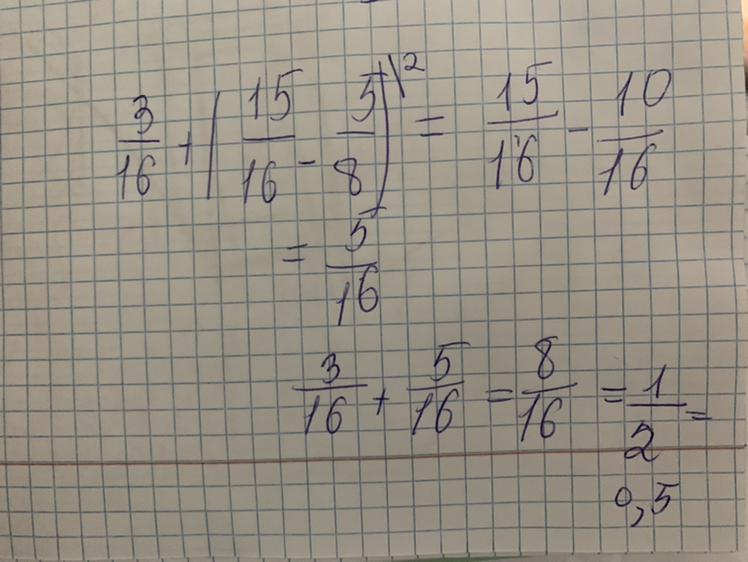 3/16 + (15/16 - 5/8\2) = 15/16 - 10/16
= 5/16
3/16 + 5/16 = 8/16 = 1/2 =
0,5